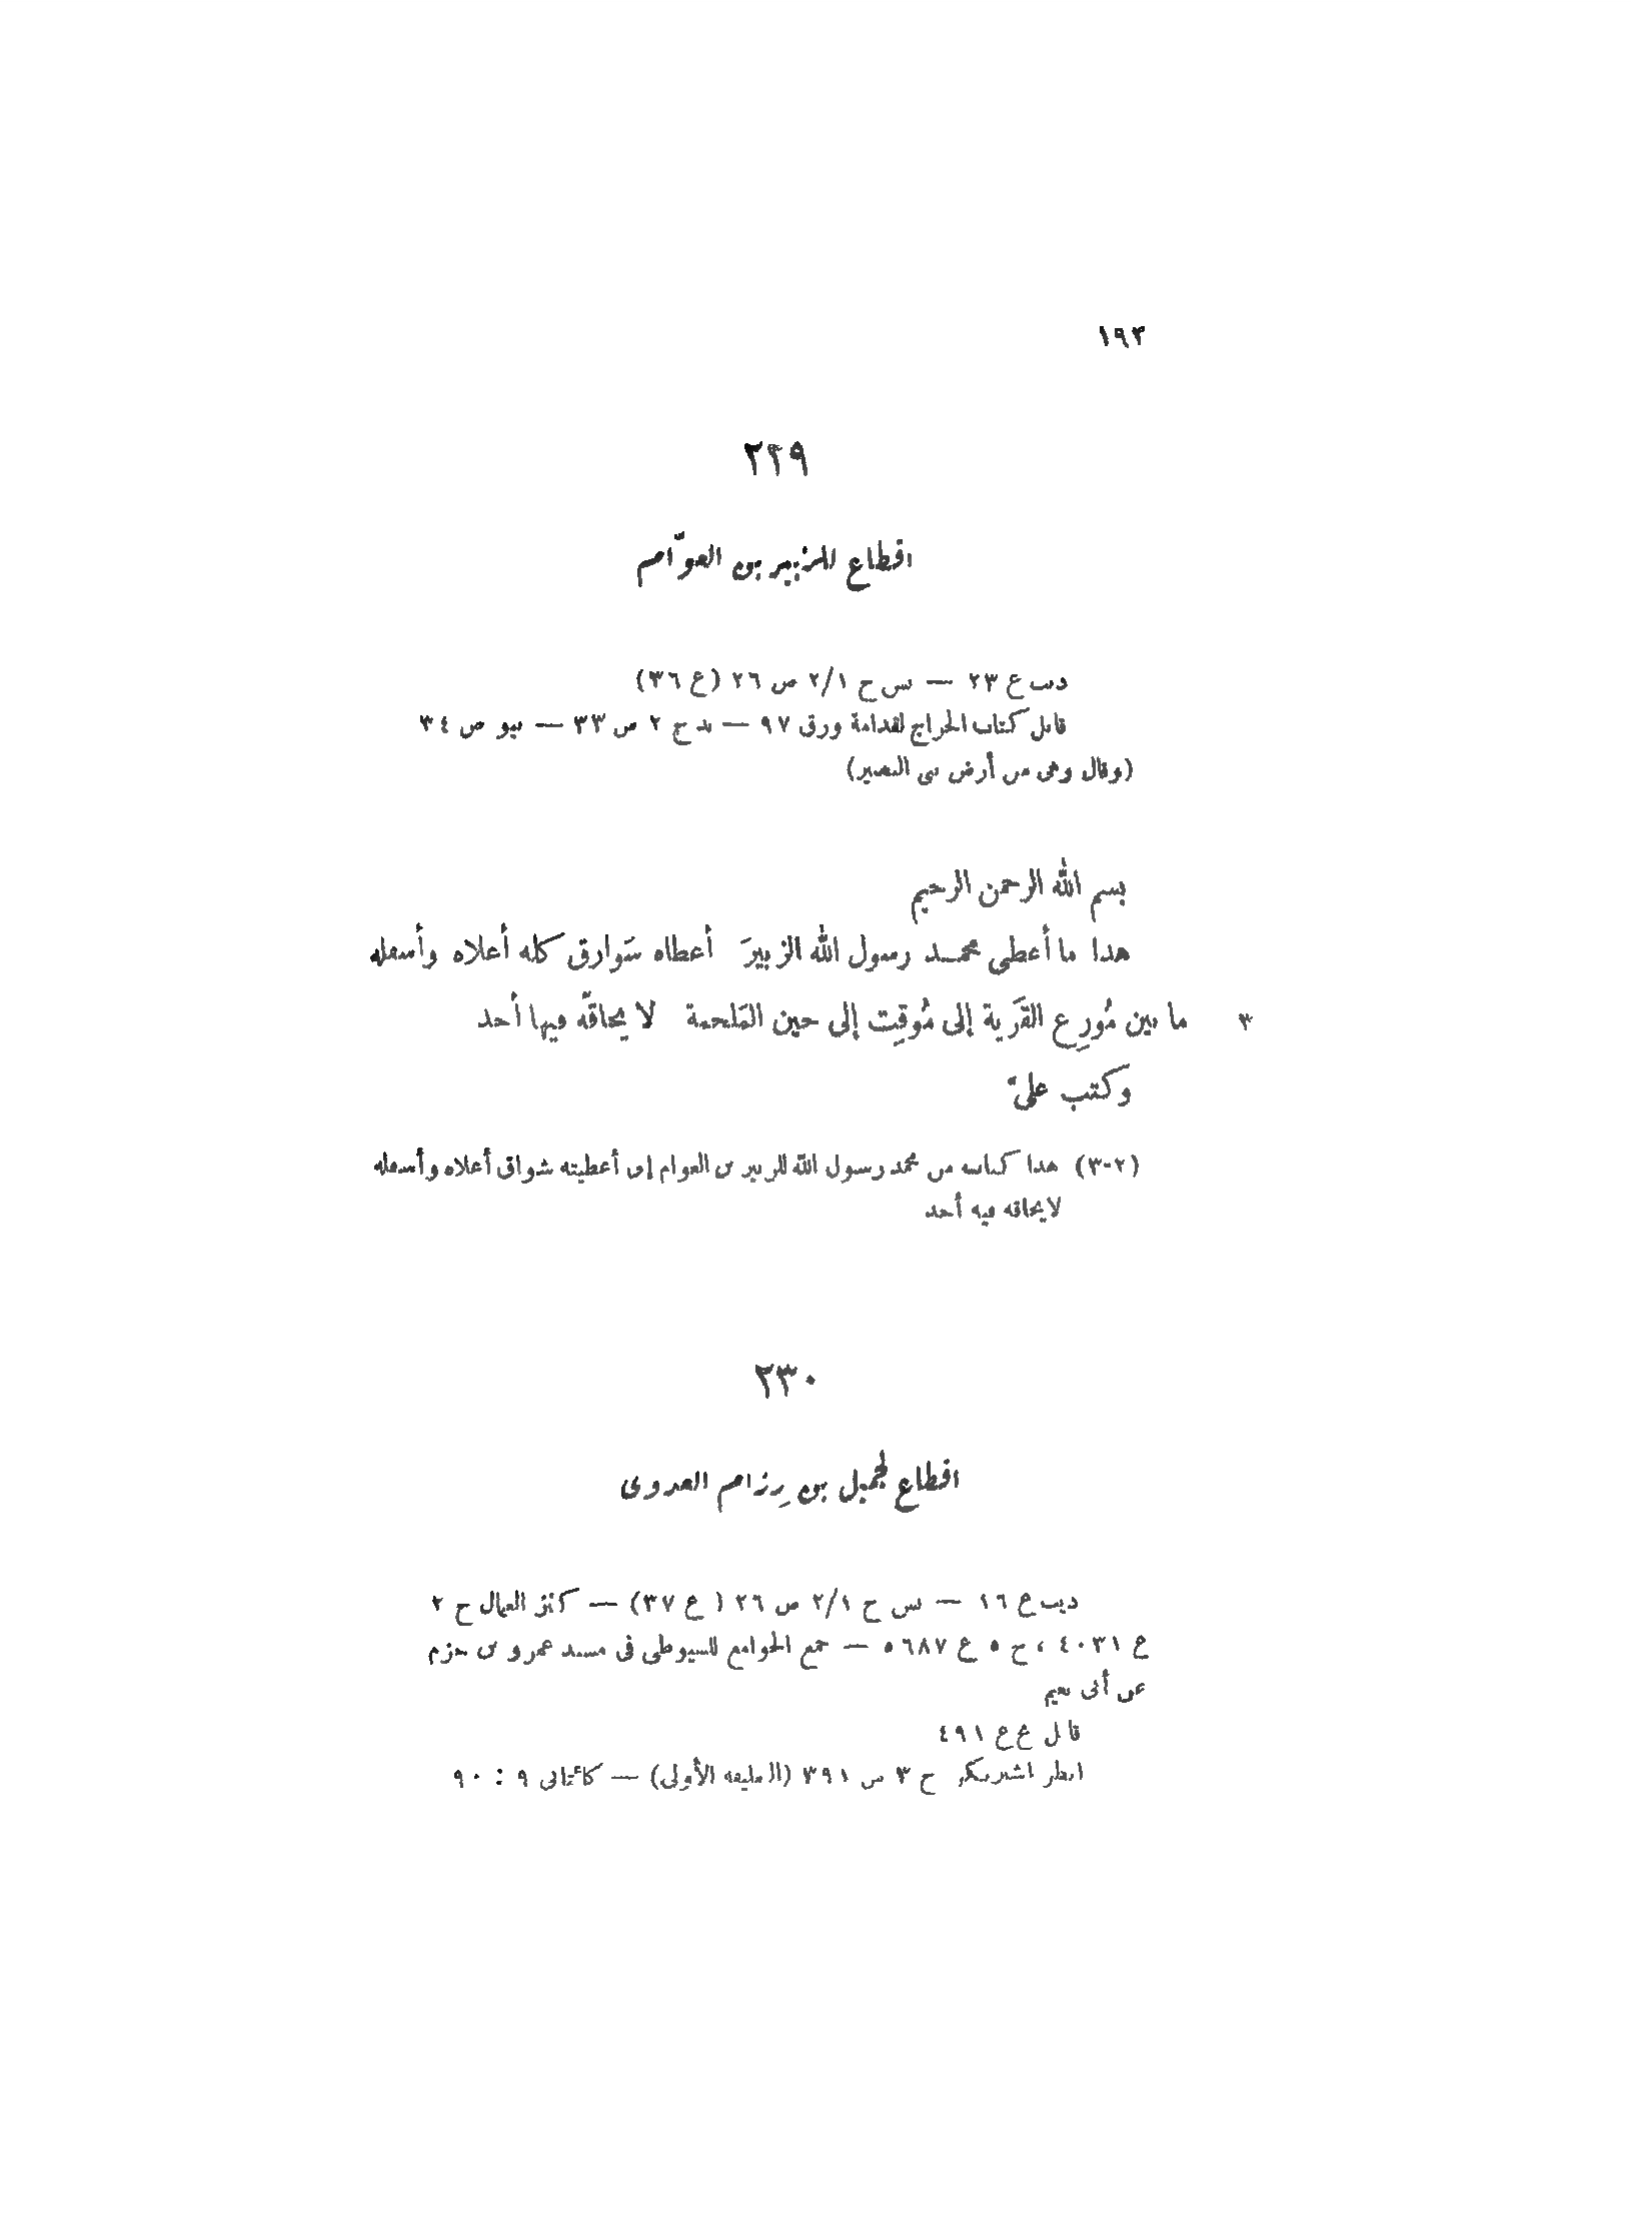 ١٩٣
٢٢٩
اقطاع للزبير بن العوّام
ديب ع ٢٣ — بس ج ٢/١ ص ٢٦ (ع ٣٦)
قابل كتاب الخراج لقدامة ورق ٩٧ — بد ج ٢ ص ٣٣ — بيو ص ٣٤
(وقال وهى من أرض بنى النضير)
بسم الله الرحمن الرحيم
هذا ما أعطى محمد رسول الله الزبيرَ أعطاه سَوارق كله أعلاه وأسفله
٣ ما بين مُورِع القَرية إلى مُوقِت إلى حين المَلحمة لا يحاقّه فيها أحد
وكتب علىّ
(٢-٣) هذا كتاب من محمد رسول الله للزبير بن العوام إنى أعطيته شواق أعلاه وأسفله
لا يحاقه فيه أحد
٢٣٠
اقطاع لجميل بن رِزام العدوى
ديب ع ١٦ — بس ج ٢/١ ص ٢٦ (ع ٣٧) — كنز العمال ج ٢
ع ٤٠٣١ ، ج ٥ ع ٥٦٨٧ — جمع الجوامع للسيوطى فى مسند عمرو بن حزم
عن أبى نعيم
قابل ع ع ٤٩١
انظر اشبرنكر ج ٣ ص ٣٩١ (التعليقة الأولى) — كائتانى ٩ : ٩٠